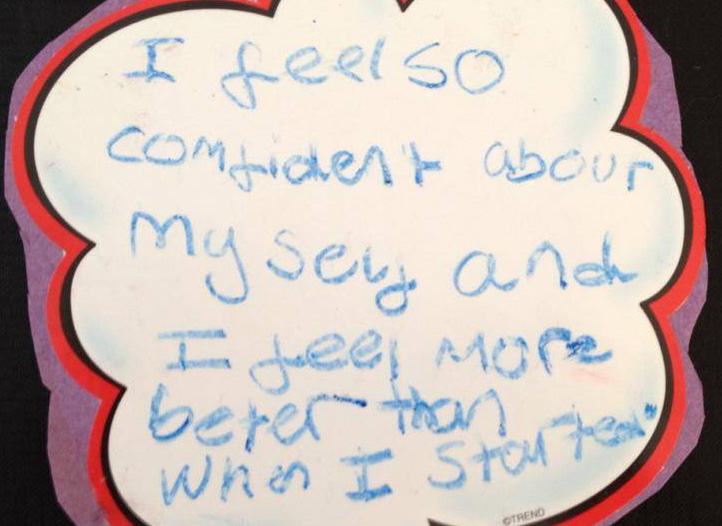 I feel so
confident about
My self and
I feel More
beter than
When I Started
©TREND